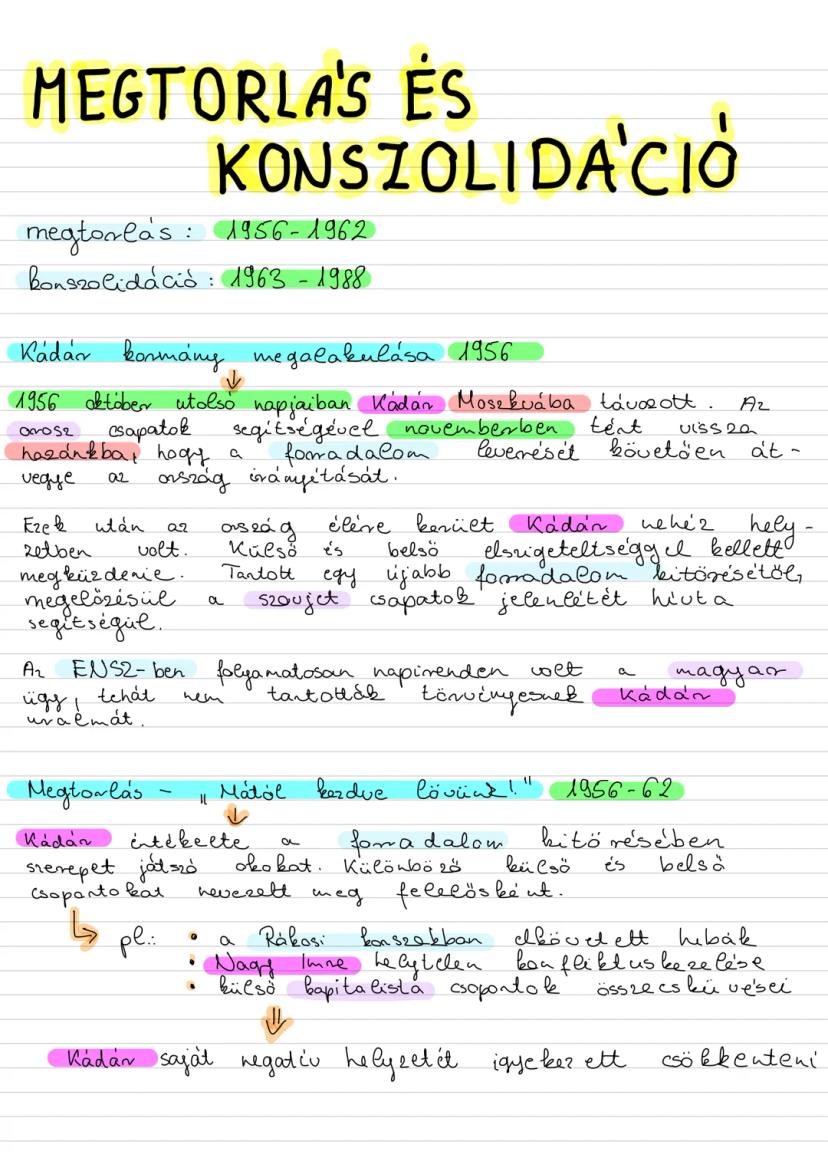 MEGTORLÁS ÉS
KONSZOLIDÁCIÓ
megtorlás: 1956-1962
konszolidáció: 1963 - 1988
Kádár kormány megalakulása 1956
1956 október utolsó napjaiban Kádár Moszkvába távozott. Az
orosz csapatok segítségével novemberben tért vissza
hazánkba, hogy a forradalom leverését követően át-
vegye az ország irányítását.
Ezek után az ország élére került Kádár nehéz hely-
zetben volt. Külső és belső elszigeteltséggel kellett
megküzdenie. Tartott egy újabb forradalom kitörésétől,
megelőzésül a szovjet csapatok jelenlétét hívta
segítségül.
Az ENSZ-ben folyamatosan napirenden volt a magyar
ügy, tehát nem tartották törvényesnek Kádár
uralmát.
Megtorlás - "Mától kezdve lövünk!" 1956-62
Kádár értékelte a forradalom kitörésében
szerepet játszó okokat. Különböző külső és belső
csoportokat nevezett meg felelősként.
pl.: • a Rákosi korszakban elkövetett hibák
• Nagy Imre helytelen konfliktuskezelése
• külső kapitalista csoportok összeesküvései
Kádár saját negatív helyzetét igyekezett csökkenteni